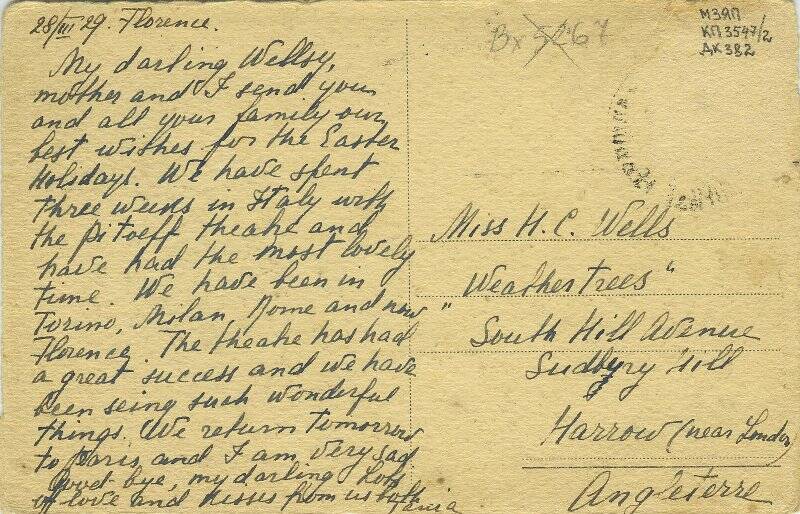 28/III 29. Florence.
My darling Wellsy,
mother and I send you
and all your family our
best wishes for the Easter
Holidays. We have spent
three weeks in Italy with
the Pitoeff theatre and
have had the most lovely
time. We have been in
Torino, Milan, Rome and now
Florence. The theatre has had
a great success and we have
been seing such wonderful
things. We return tomorrow
to Paris and I am very sad
Good-bye, my darling Lots
of love and kisses from us both
Tania
Вх 5267
МЗЯП
КП 3547/2
ДК 382
Miss H. C. Wells
"Weathertrees"
South Hill Avenue
Sudbury Hill
Harrow (near London)
Angleterre